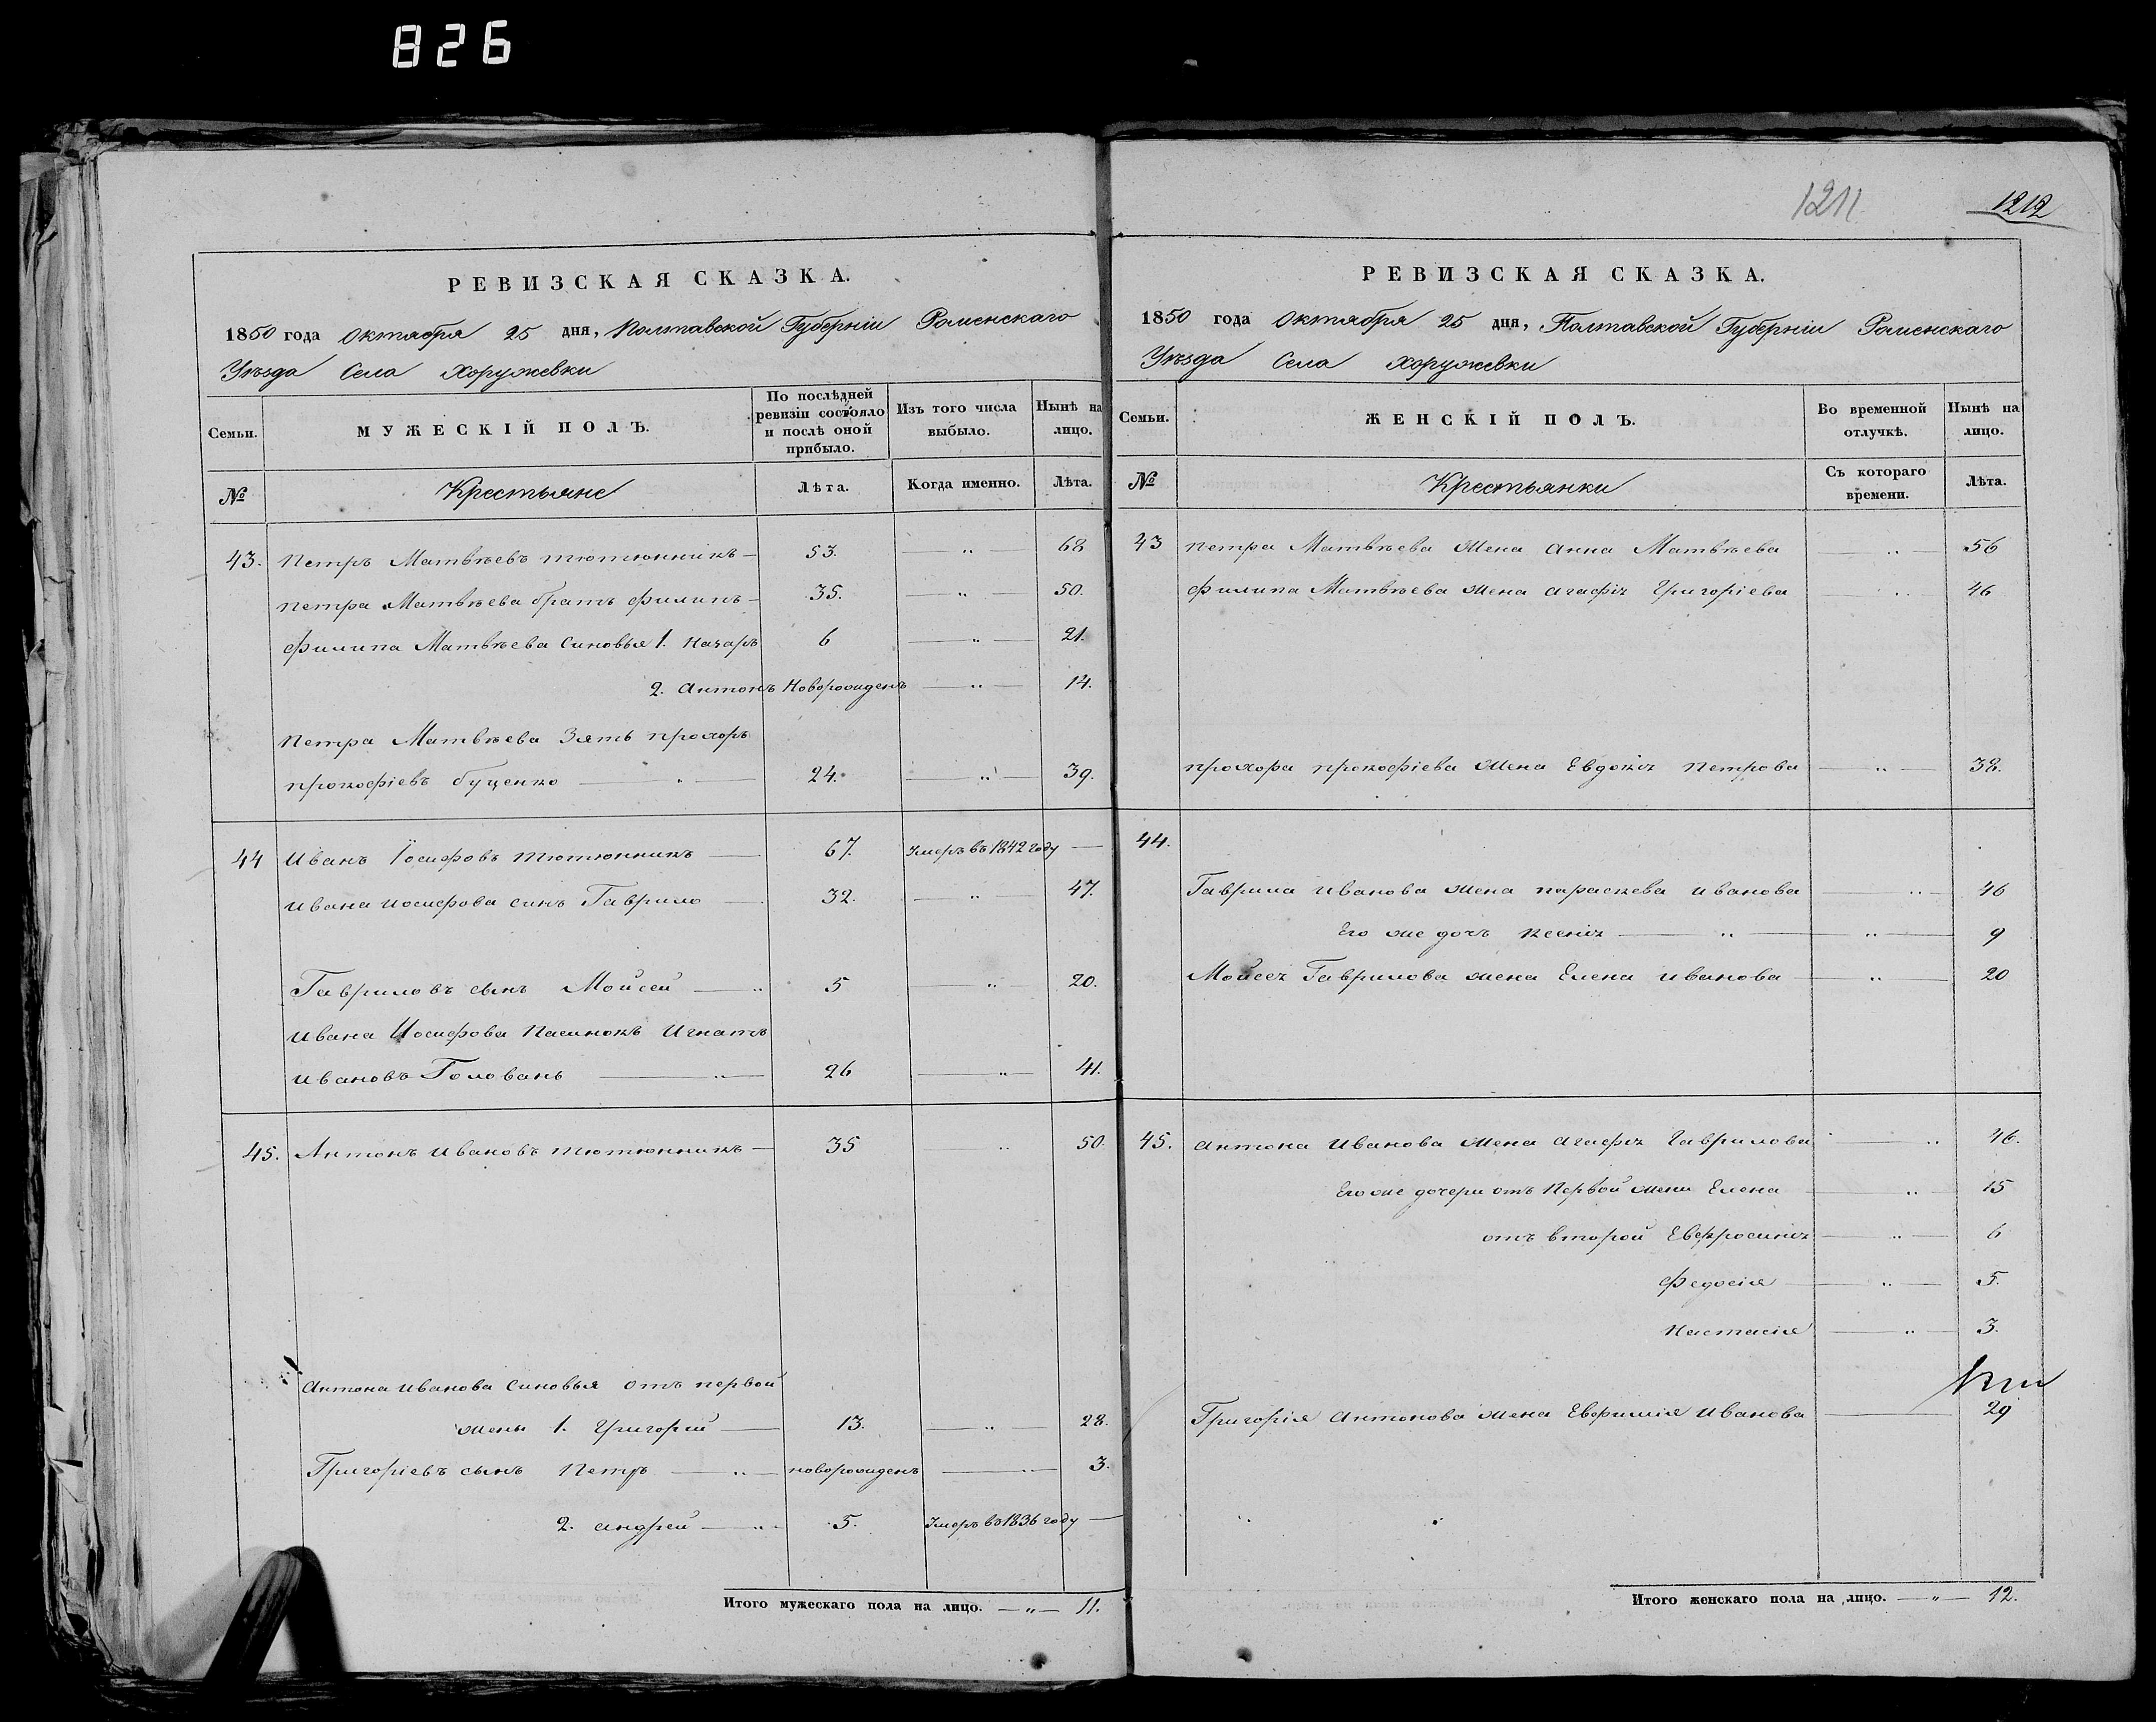 826
1211 1212
РЕВИЗСКАЯ СКАЗКА.
1850 года Октября 25 дня, Полтавской Губерніи Роменскаго
Уѣзда Села Хоружевки
Семьи. МУЖЕСКІЙ ПОЛЪ. По послѣдней ревизіи состояло и послѣ оной прибыло. Изъ того числа выбыло. Нынѣ на лицо.
№ Крестьяне Лѣта. Когда именно. Лѣта.
43. Петръ Матвѣевъ тютюнникъ — 53. — „ — 68
Петра Матвѣева братъ филипъ — 35. — „ — 50.
филипа Матвѣева синовья 1. Назаръ 6 — „ — 21.
2. антонъ Новорожденъ — „ — 14.
Петра Матвѣева Зять прохоръ
прокофіевъ буценко — „ — 24. — „ — 39.
44 Иванъ Іосифовъ тютюнникъ — 67. Умеръ въ 1842 году —
Ивана иосифова синъ Гаврило — 32. — „ — 47.
Гавриловъ сынъ Мойсей — „ 5 — „ — 20.
Ивана Иосифова Пасинокъ Игнатъ
Ивановъ Головань — „ — 26 — „ — 41.
45. Антонъ Ивановъ тютюнникъ — 35 — „ 50.
Антона Иванова синовья отъ первой
жены 1. Григорій — 13. — „ — 28.
Григоріевъ сынъ Петръ — „ — новорожденъ — „ — 3.
2. андрей — „ — 5. Умеръ въ 1836 году —
Итого мужескаго пола на лицо. — „ — 11.
РЕВИЗСКАЯ СКАЗКА.
1850 года Октября 25 дня, Полтавской Губерніи Роменскаго
Уѣзда Села Хоружевки
Семьи. ЖЕНСКІЙ ПОЛЪ. Во временной отлучкѣ. Нынѣ на лицо.
№ Крестьянки Съ котораго времени. Лѣта.
43 Петра Матвѣева жена анна Матвѣева — „ — 56
филипа Матвѣева жена агафія Григоріева — „ 46
прохора прокофіева жена Евдокія Петрова — „ — 38.
44.
Гаврила Иванова жена параскева иванова — „ — 46
Его же дочъ Ксенія — „ — „ — 9
Мойсея Гаврилова жена Елена иванова — „ — 20
45. антона Иванова жена агафія Гаврилова — „ 46.
Его же дочери отъ Первой жени Елена — „ — 15
отъ второй Евфросинія — „ — 6
Федосія — „ — 5.
Настасія — „ — 3.
Григорія антонова жена Евфимія Иванова — 29
Итого женскаго пола на лицо. — „ — 12.